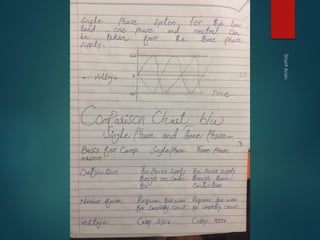 Single Phase System. For the low
load one phase and neutral can
be taken from the three phase
supply.
Voltage
Time
Comparison Chart b/w
Single Phase and Three Phase
Basis for Comp Single Phase Three Phase
arison
Definition The Power Supply The Power Supply
through one through three
conductor
Number of wire Require two wire Require four wire
for completing circuit for completing circuit
Voltage Carry 230V Carry 415V
Sharif Arain